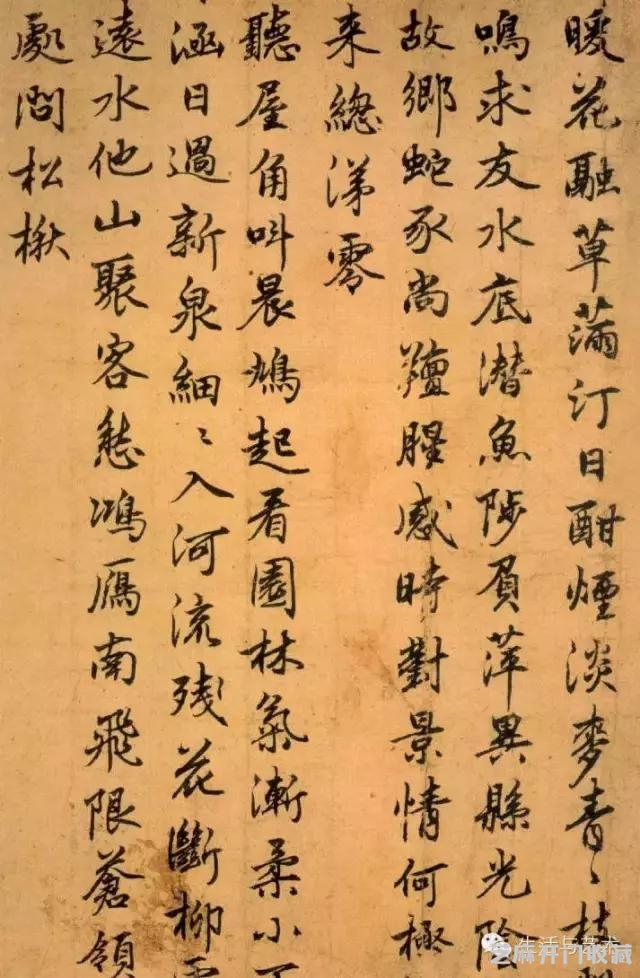 暖花融草满汀日酣煙淡麥青〻
鳴求友水底潜魚陟負萍異縣光陰
故鄉蛇豕尚羶腥感時對景情何極
来總涕零
聽屋角叫晨鳩起看園林氣漸柔小
涵日過新泉細〻入河流残花斷柳
遠水他山聚客愁鴻雁南飛限蒼嶺
處問松楸
生活与艺术
麻开门收藏